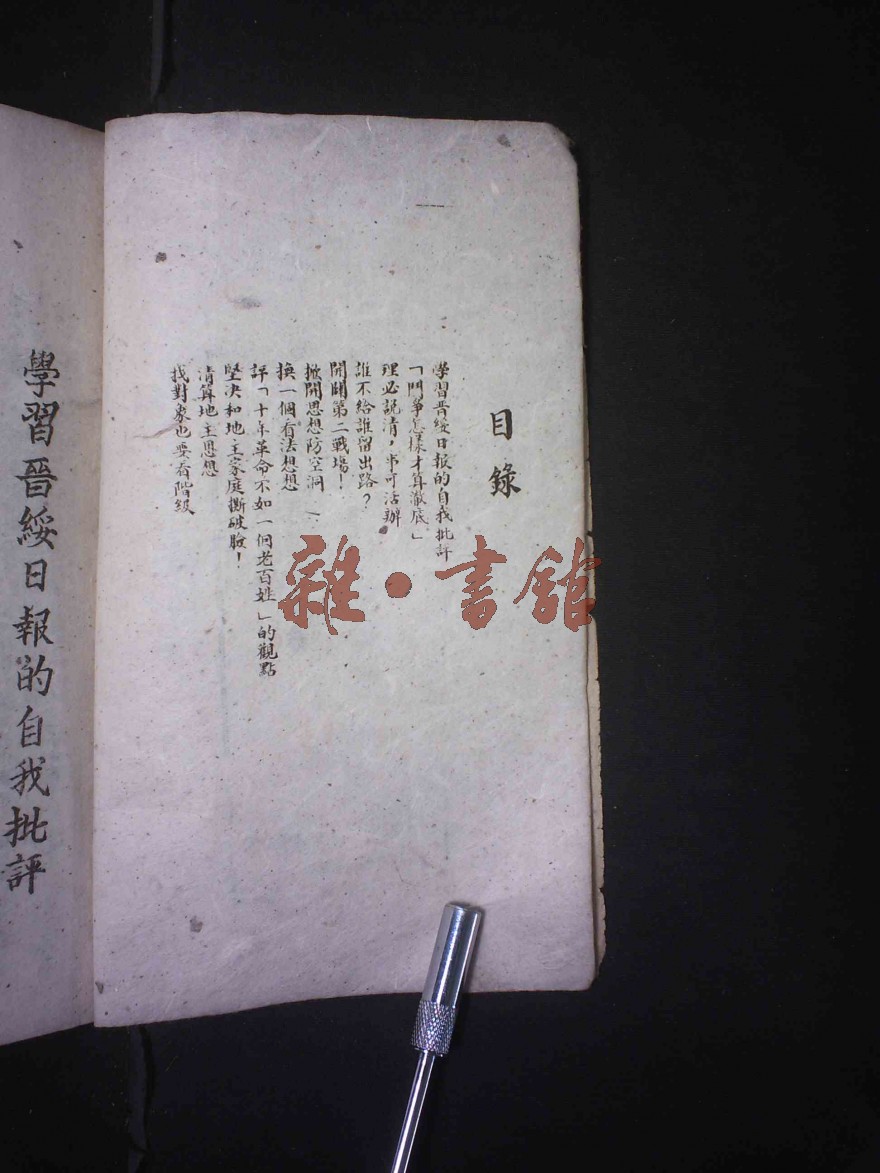 目錄
學習晋綏日報的自我批評
「鬥爭怎樣才算澈底」
理必說清，事可活辦
誰不給誰留出路？
開闢第二戰場！
掀開思想防空洞
換一個看法想想
評「十年革命不如一個老百姓」的觀點
堅決和地主家庭撕破臉！
清算地主思想
找對象也要看階級
學習晉綏日報的自我批評
雜·書館